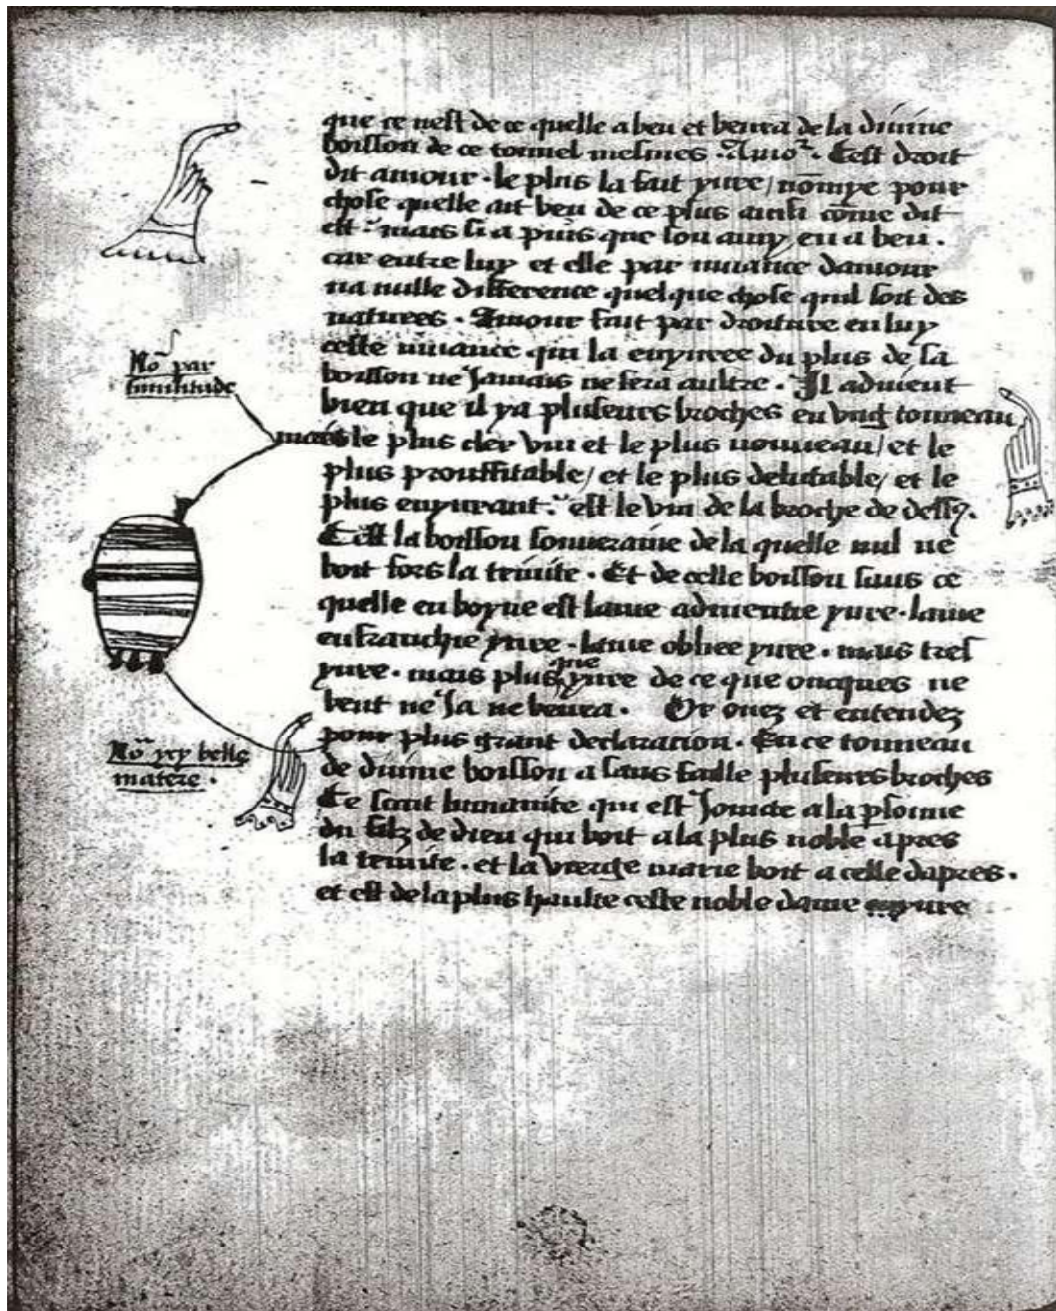 que ce nest de ce quelle a beu et beura de la diuine
boisson de ce tonnel mesmes · Amoʳ · Cest droit
dit amour · le plus la fait yure / nōmye pour
chose quelle ait beu de ce plus ainsi cōme dit
est · mais si a puis que son amy en a beu .
car entre luy et elle par muance damour
na nulle difference quelque chose quil soit des
natures · Amour fait par droiture en luy
ceste muance qui la enyuree du plus de sa
boisson ne Jamais ne sera aultre · Il aduient
bien que il ya pluseurs broches en vng tonneau
mais le plus cler vin et le plus nouueau / et le
plus prouffitable / et le plus delitable / et le
plus enyurant · est le vin de la broche de dessꝰ.
Cest la boisson souueraine de la quelle nul ne
boit fors la trinite · Et de celle boisson sans ce
quelle en boyue est lame adnientie yure · lame
enfranchie yure · lame obliee yure · mais tres
yure · mais plus que yure de ce que oncques ne
beut ne Ja ne beura · Or oiiez et entendez
pour plus grant declaracion · En ce tonneau
de diuine boisson a sans faille pluseurs broches
Ce scait humanite qui est Jointe a la ꝑsonne
du filz de dieu qui boit a la plus noble apres
la trinite · et la vierge marie boit a celle dapres ·
et est de la plus haulte ceste noble dame yure
Noᵃ par
similitude
Noᵃ ycy belle
matere ·